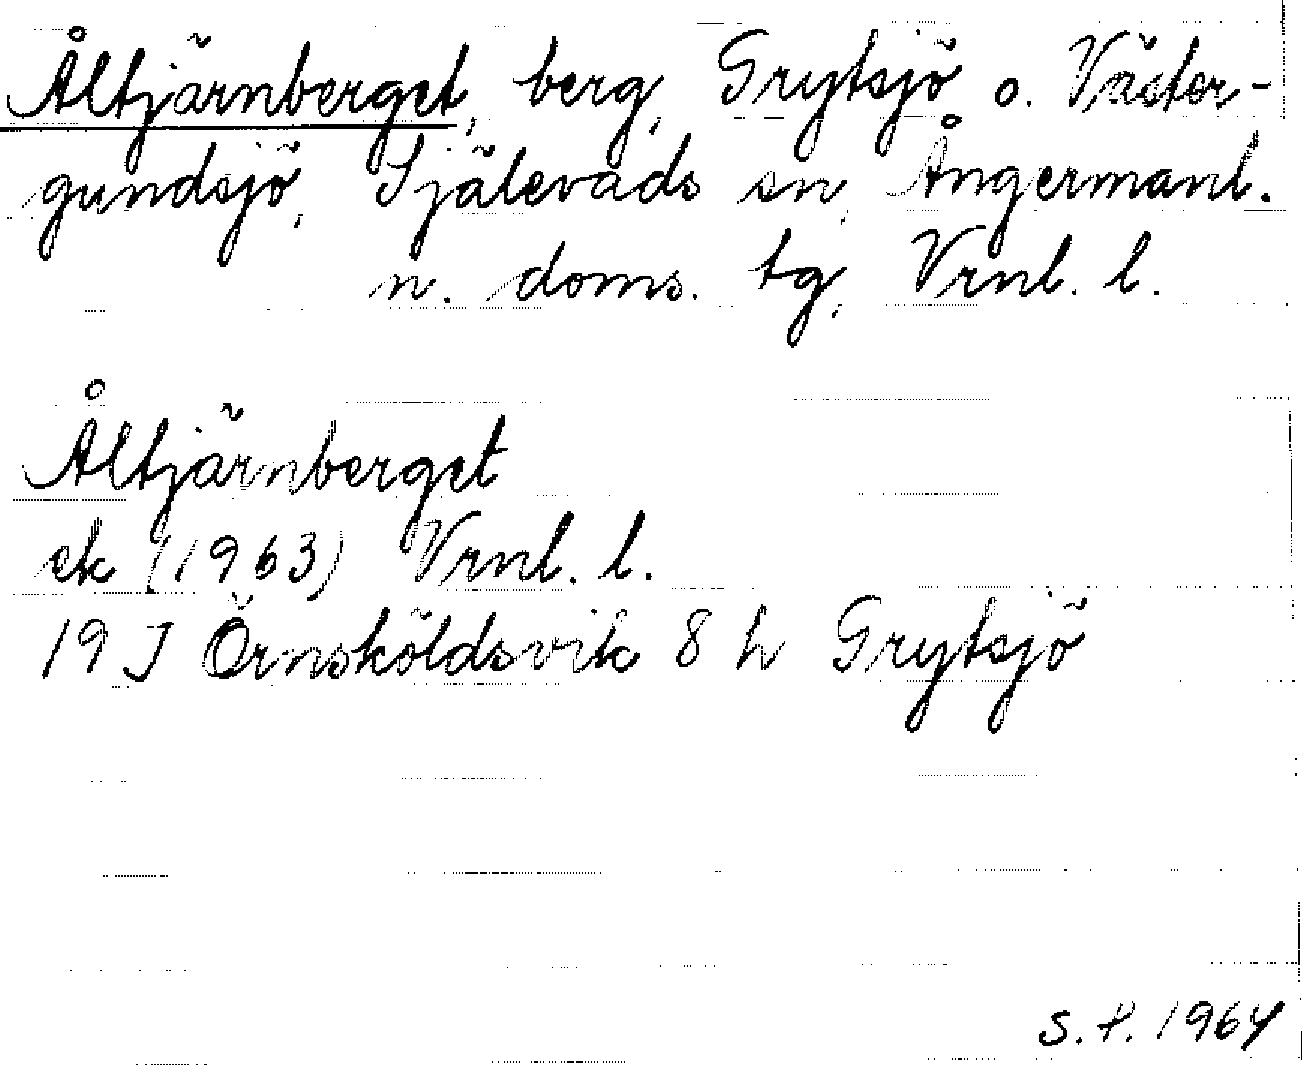 Åltjärnberget, berg, Grytsjö o. Väster-
gundsjö, Själevads sn, Ångermanl.
n. doms. tg, Vrnl. l.
Åltjärnberget
ek (1963) Vrnl. l.
19 J Örnsköldsvik 8 h Grytsjö
S. F. 1964